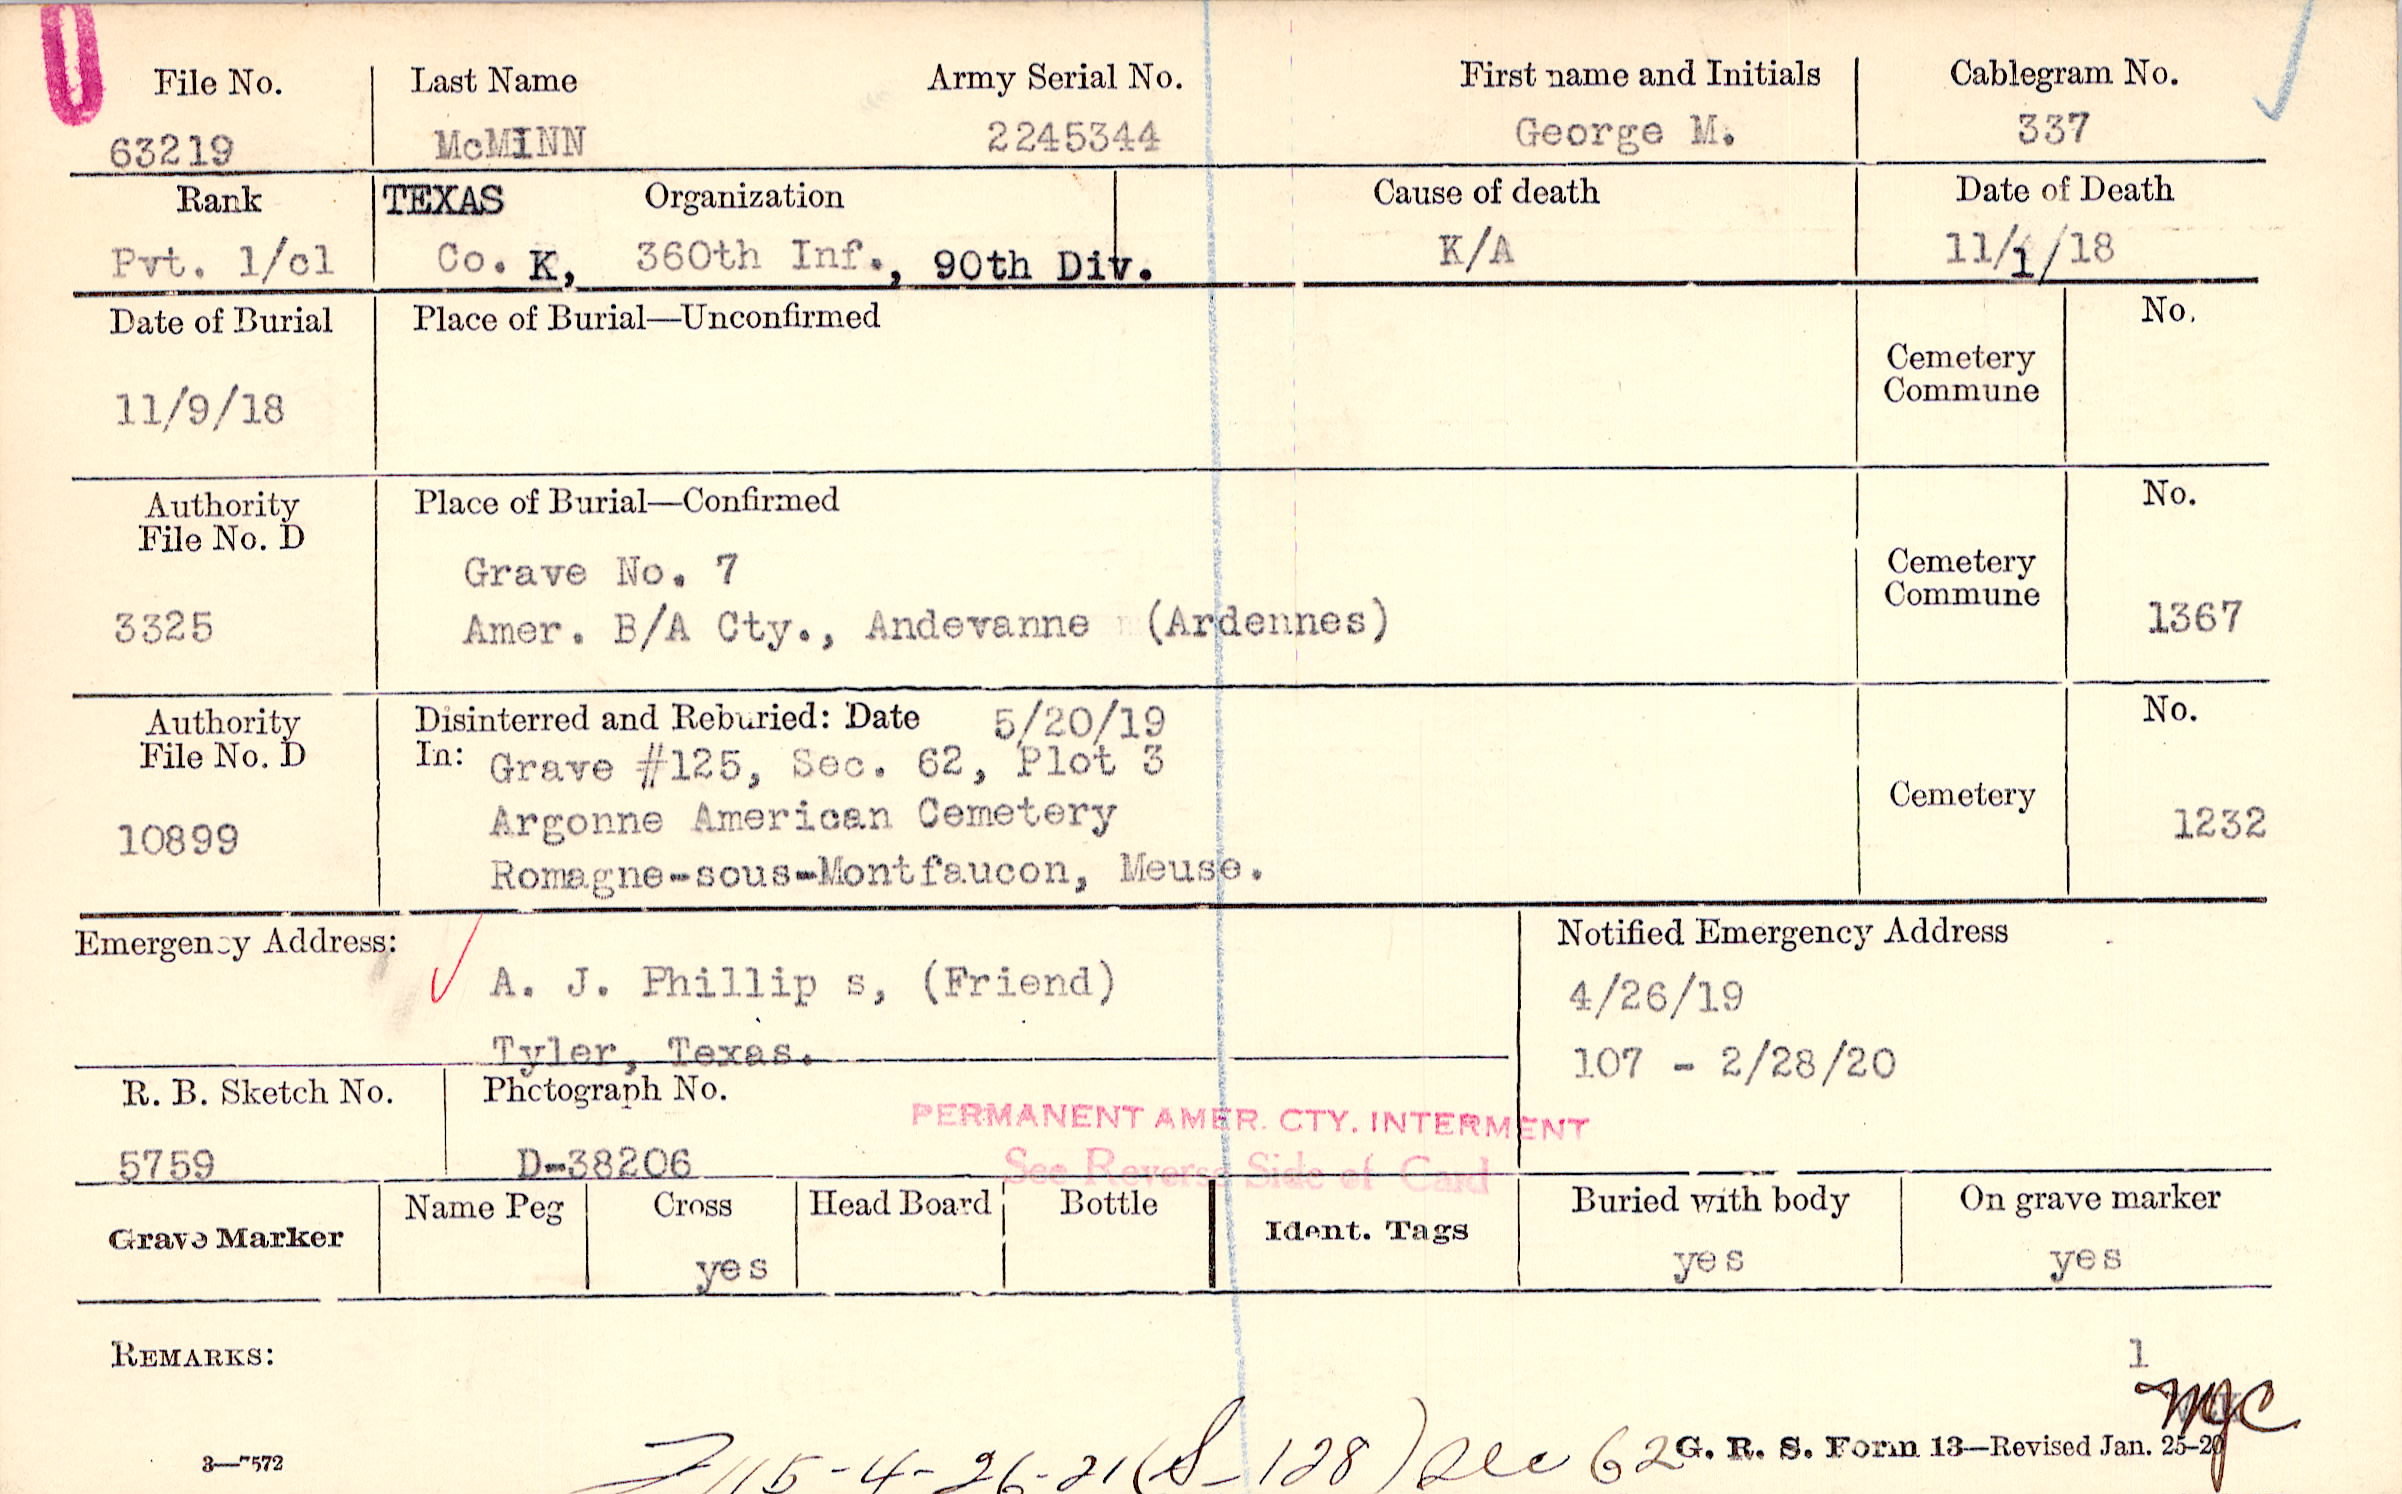 File No. Last Name Army Serial No. First name and Initials Cablegram No.
63219 McMINN 2245344 George M. 337
Rank TEXAS Organization Cause of death Date of Death
Pvt. 1/cl Co. K, 360th Inf., 90th Div. K/A 11/1/18
Date of Burial Place of Burial—Unconfirmed No.
11/9/18 Cemetery
Commune
Authority Place of Burial—Confirmed No.
File No. D
Grave No. 7 Cemetery
3325 Amer. B/A Cty., Andevanne (Ardennes) Commune 1367
Authority Disinterred and Reburied: Date 5/20/19 No.
File No. D In: Grave #125, Sec. 62, Plot 3
10899 Argonne American Cemetery Cemetery 1232
Romagne-sous-Montfaucon, Meuse.
Emergency Address: Notified Emergency Address
A. J. Phillip s, (Friend) 4/26/19
Tyler, Texas. 107 - 2/28/20
R. B. Sketch No. Photograph No.
PERMANENT AMER. CTY. INTERMENT
5759 D-38206 See Reverse Side of Card
Grave Marker Name Peg Cross Head Board Bottle Ident. Tags Buried with body On grave marker
yes yes yes
REMARKS: 1
MJC
3—7572 115-4-26-21 (S-128) Sec 62 G. R. S. Form 13—Revised Jan. 25-20